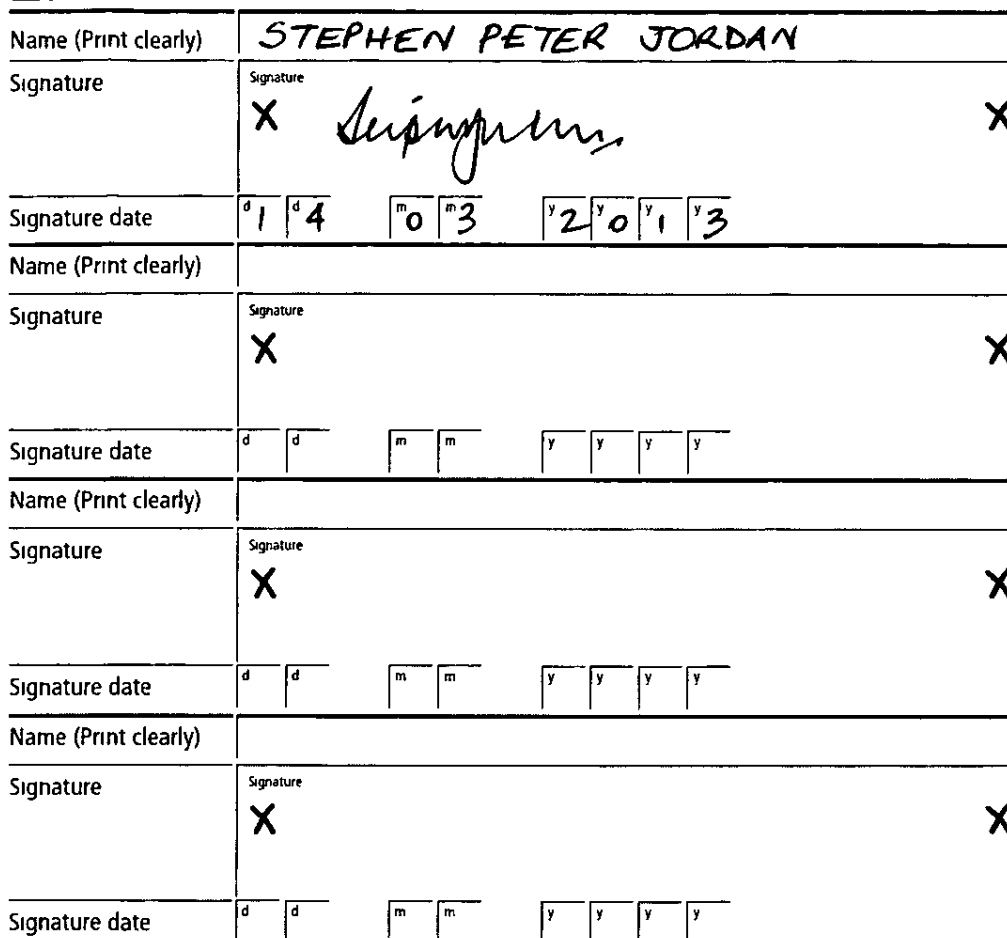 Name (Print clearly) STEPHEN PETER JORDAN
Signature Signature
X X
Signature date d1 d4 m0 m3 y2 y0 y1 y3
Name (Print clearly)
Signature Signature
X X
Signature date d d m m y y y y
Name (Print clearly)
Signature Signature
X X
Signature date d d m m y y y y
Name (Print clearly)
Signature Signature
X X
Signature date d d m m y y y y